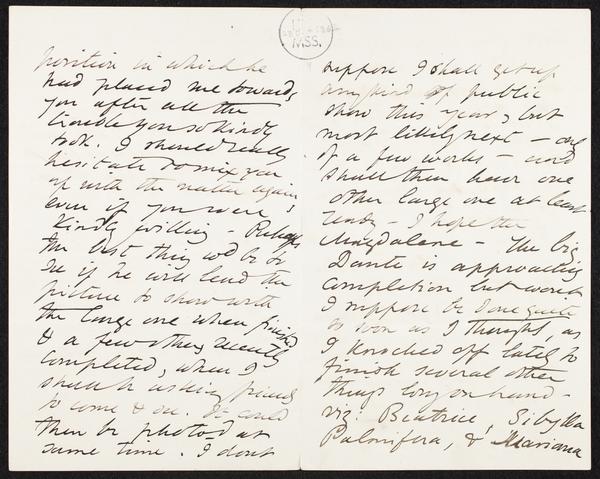 position in which he
had placed me towards
you after all the
trouble you so kindly
took. I should really
hesitate to mix you
up with the matter again,
even if you were
kindly willing - Perhaps
the best thing wd be to
see if he will lend the
picture to show with
the large one when finished
& a few others recently
completed, when I
shall be asking friends
to come & see. It could
then be photo-d at
same time. I dont
MSS.
suppose I shall get up
any kind of public
show this year, but
most likely next - only
of a few works - and
shall then have one
other large one at least
ready - I hope the
Magdalene - The big
Dante is approaching
completion but wont
I suppose be done quite
as soon as I thought, as
I knocked off lately to
finish several other
things long on hand -
viz: Beatrice, Sibylla
Palmifera, & Mariana